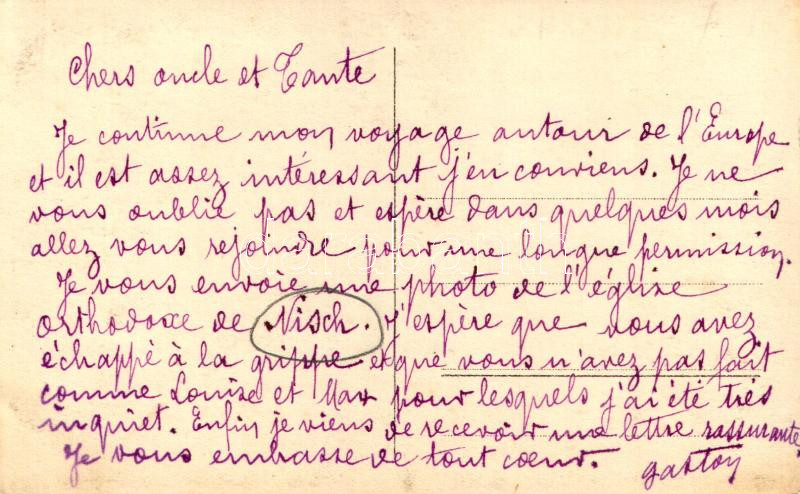 Chers oncle et Tante
Je continue mon voyage autour de l'Europe
et il est assez intéressant j'en conviens. Je ne
vous oublie pas et espère dans quelques mois
allez vous rejoindre pour une longue permission.
Je vous envoie une photo de l'église
orthodoxe de Nisch. J'espère que vous avez
échappé à la grippe et que vous n'avez pas fait
comme Louise et Max pour lesquels j'ai été très
inquiet. Enfin je viens de recevoir une lettre rassurante.
Je vous embrasse de tout cœur. gaston